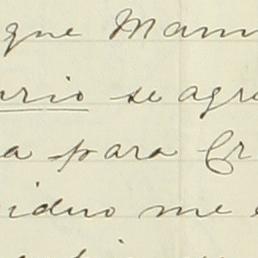 que Mam
ario se agre
a para Cr
iduo me